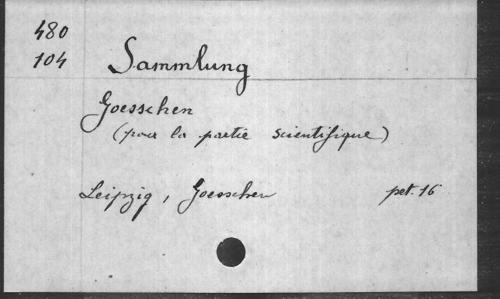 480
104 Sammlung
Goesschen
(pour la partie scientifique)
Leipzig, Goesschen pet. 16